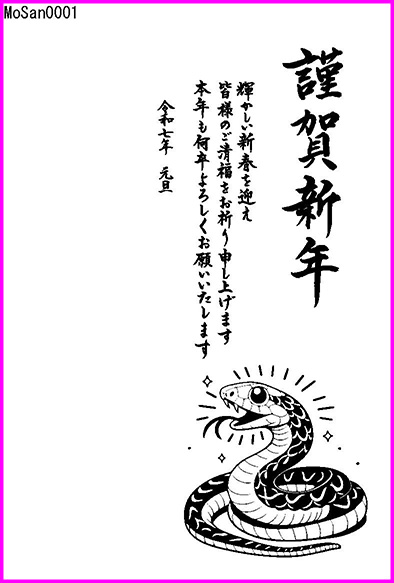 MoSan0001
謹賀新年
輝かしい新春を迎え
皆様のご清福をお祈り申し上げます
本年も何卒よろしくお願いいたします
令和七年 元旦